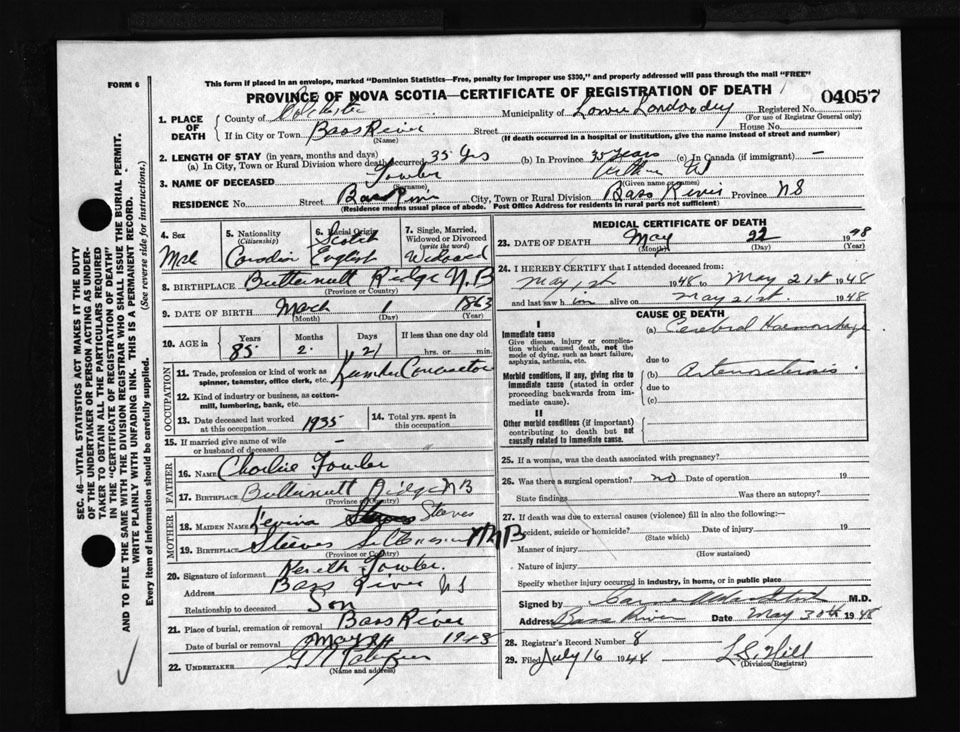 FORM 6
This form if placed in an envelope, marked "Dominion Statistics—Free, penalty for improper use $300," and properly addressed will pass through the mail "FREE"
PROVINCE OF NOVA SCOTIA—CERTIFICATE OF REGISTRATION OF DEATH
04057
1. PLACE OF DEATH
County of Colchester Municipality of Lower Londondery Registered No.
(For use of Registrar General only)
If in City or Town Bass River Street House No.
(Name) (If death occurred in a hospital or institution, give the name instead of street and number)
2. LENGTH OF STAY (in years, months and days)
(a) In City, Town or Rural Division where death occurred 35 Yrs (b) In Province 35 Years (c) In Canada (if immigrant) —
3. NAME OF DECEASED Fowler W
(Surname) (Given name or names)
RESIDENCE No. Street Bass River City, Town or Rural Division Bass River Province NS
(Residence means usual place of abode. Post Office Address for residents in rural parts not sufficient)
4. Sex
Male
5. Nationality
(Citizenship)
Canadian
6. Racial Origin
Scotch
English
7. Single, Married, Widowed or Divorced
(write the word)
Widowed
8. BIRTHPLACE Butternutt Ridge N.B
(Province or Country)
9. DATE OF BIRTH March 1 1863
(Month) (Day) (Year)
10. AGE in
Years Months Days If less than one day old
85 2 21 hrs. or min.
OCCUPATION
11. Trade, profession or kind of work as
spinner, teamster, office clerk, etc.
12. Kind of industry or business, as cotton-
mill, lumbering, bank, etc.
13. Date deceased last worked
at this occupation 1935
14. Total yrs. spent in
this occupation
15. If married give name of wife
or husband of deceased —
FATHER
16. NAME Charlie Fowler
17. BIRTHPLACE Butternutt Ridge NB
(Province or Country)
MOTHER
18. MAIDEN NAME Steeves
19. BIRTHPLACE Steeves NB
(Province or Country)
20. Signature of informant Fowler
Address Bass River NS
Relationship to deceased Son
21. Place of burial, cremation or removal Bass River
Date of burial or removal May 24 1948
22. UNDERTAKER
(Name and address)
MEDICAL CERTIFICATE OF DEATH
23. DATE OF DEATH May 22 1948
(Month) (Day) (Year)
24. I HEREBY CERTIFY that I attended deceased from:
May 1st 1948 to May 21st 1948
and last saw him alive on May 21st. 1948
CAUSE OF DEATH
I
Immediate cause
Give disease, injury or complica-
tion which caused death, not the
mode of dying, such as heart failure,
asphyxia, asthenia, etc.
(a) Cerebral Haemorrhage
due to
Morbid conditions, if any, giving rise to
immediate cause (stated in order
proceeding backwards from im-
mediate cause).
(b) Arteriosclerosis
due to
(c)
II
Other morbid conditions (if important)
contributing to death but not
causally related to immediate cause.
25. If a woman, was the death associated with pregnancy?
26. Was there a surgical operation? no Date of operation 19
State findings Was there an autopsy?
27. If death was due to external causes (violence) fill in also the following:—
Accident, suicide or homicide? Date of injury 19
(State which)
Manner of injury
(How sustained)
Nature of injury
Specify whether injury occurred in industry, in home, or in public place
Signed by M.D.
Address Bass River Date May 30th 1948
28. Registrar's Record Number 8
29. Filed July 16 1948 L.S. Hill
(Division Registrar)
SEC. 46—VITAL STATISTICS ACT MAKES IT THE DUTY
OF THE UNDERTAKER OR PERSON ACTING AS UNDER-
TAKER TO OBTAIN ALL THE PARTICULARS REQUIRED
IN THE "CERTIFICATE OF REGISTRATION OF DEATH"
AND TO FILE THE SAME WITH THE DIVISION REGISTRAR WHO SHALL ISSUE THE BURIAL PERMIT.
WRITE PLAINLY WITH UNFADING INK. THIS IS A PERMANENT RECORD.
Every item of information should be carefully supplied. (See reverse side for instructions.)